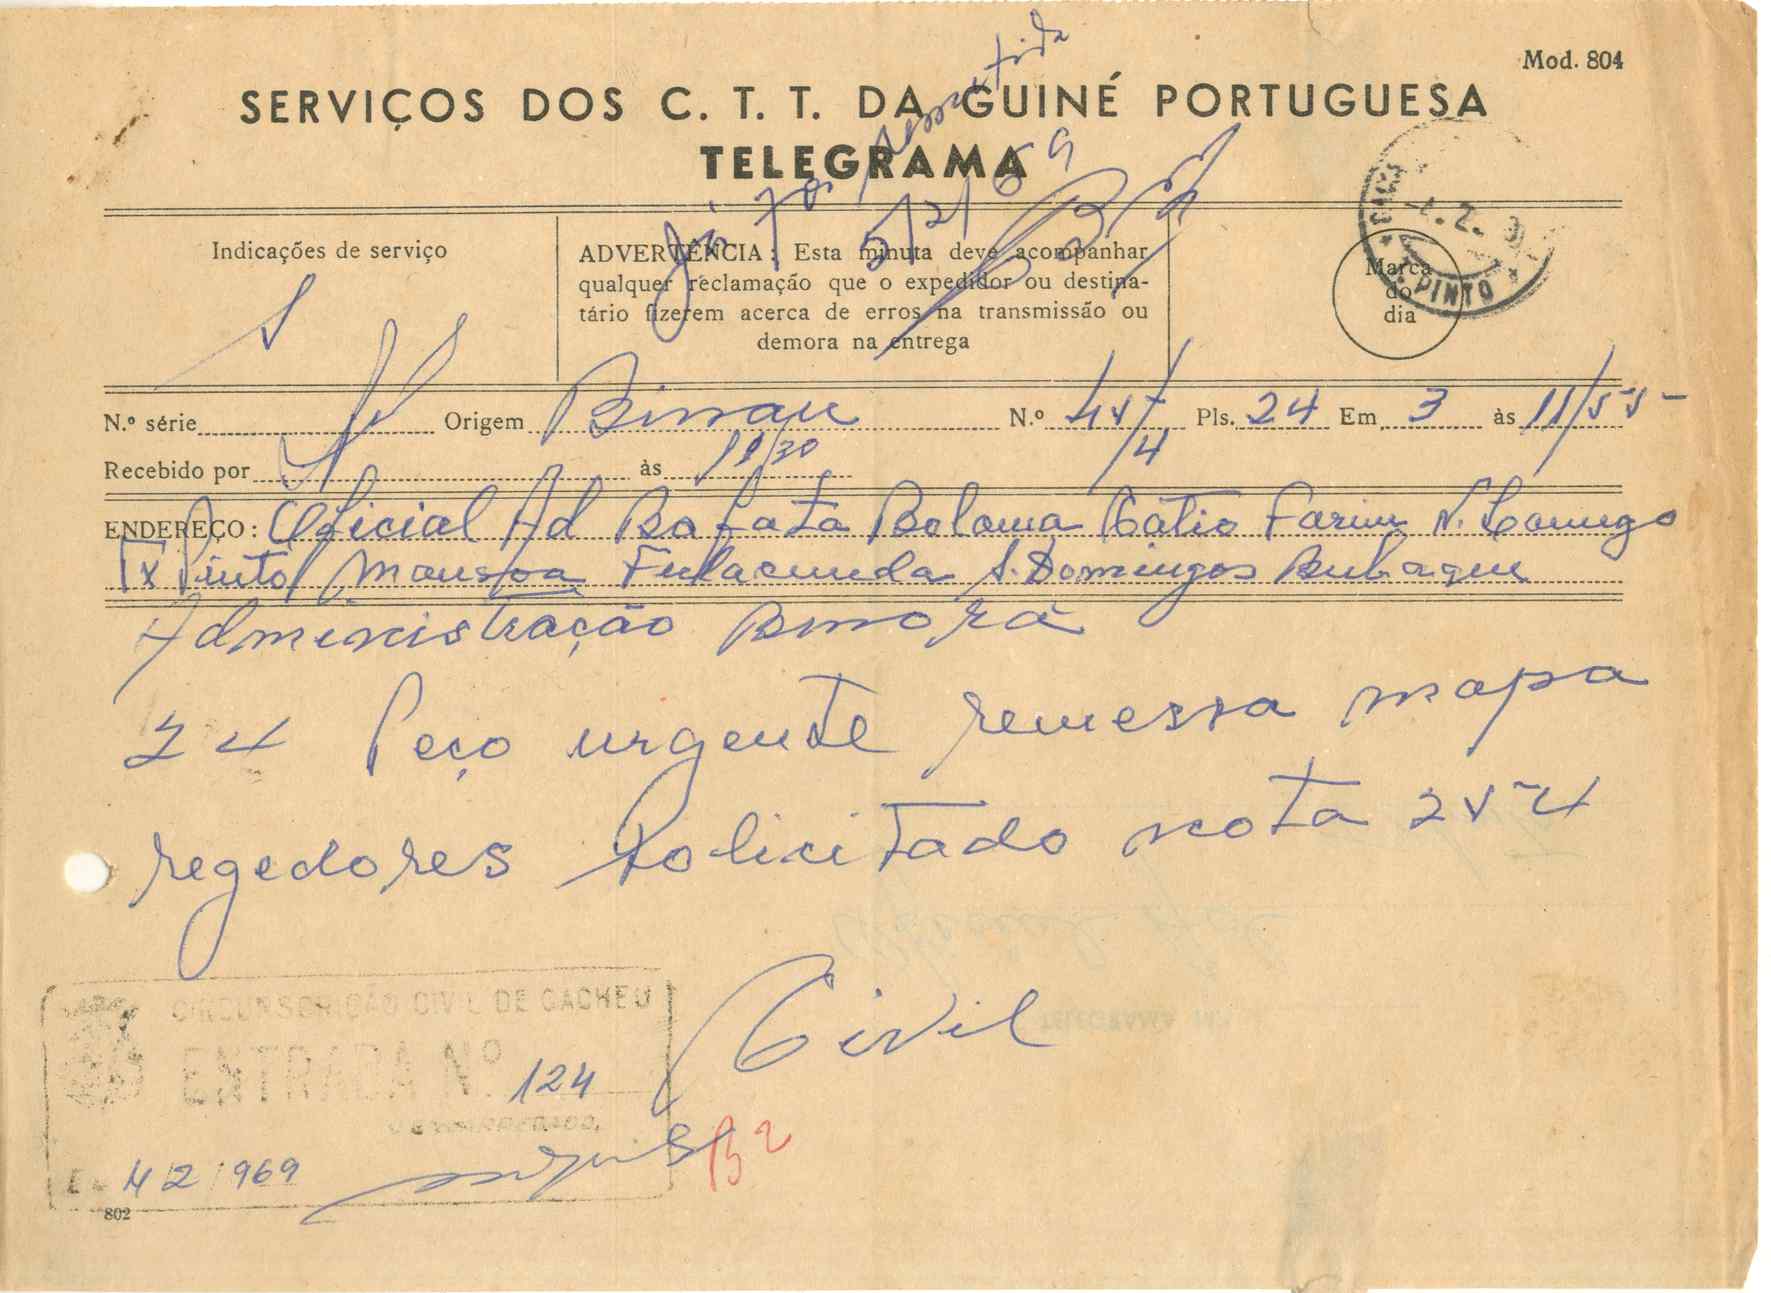 Mod. 804
SERVIÇOS DOS C. T. T. DA GUINÉ PORTUGUESA
TELEGRAMA
Já foi remetida
5/2/69
Indicações de serviço
ADVERTÊNCIA : Esta minuta deve acompanhar
qualquer reclamação que o expedidor ou destina-
tário fizerem acerca de erros na transmissão ou
demora na entrega
Marca
do
dia
PINTO
N.º série Origem Bissau N.º Pls. 24 Em 3 às 11/55
Recebido por às 11/30
ENDEREÇO : Oficial Ad Bafata Bolama Catio Farim N. Lamego
Tx Pinto Mansoa Fulacunda S. Domingos Bubaque
Administração Bissorã
24 Peço urgente remessa mapa
regedores solicitado nota 254
Civil
CIRCUNSCRIÇÃO CIVIL DE CACHEU
ENTRADA Nº 124
4/2/1969
B2
802